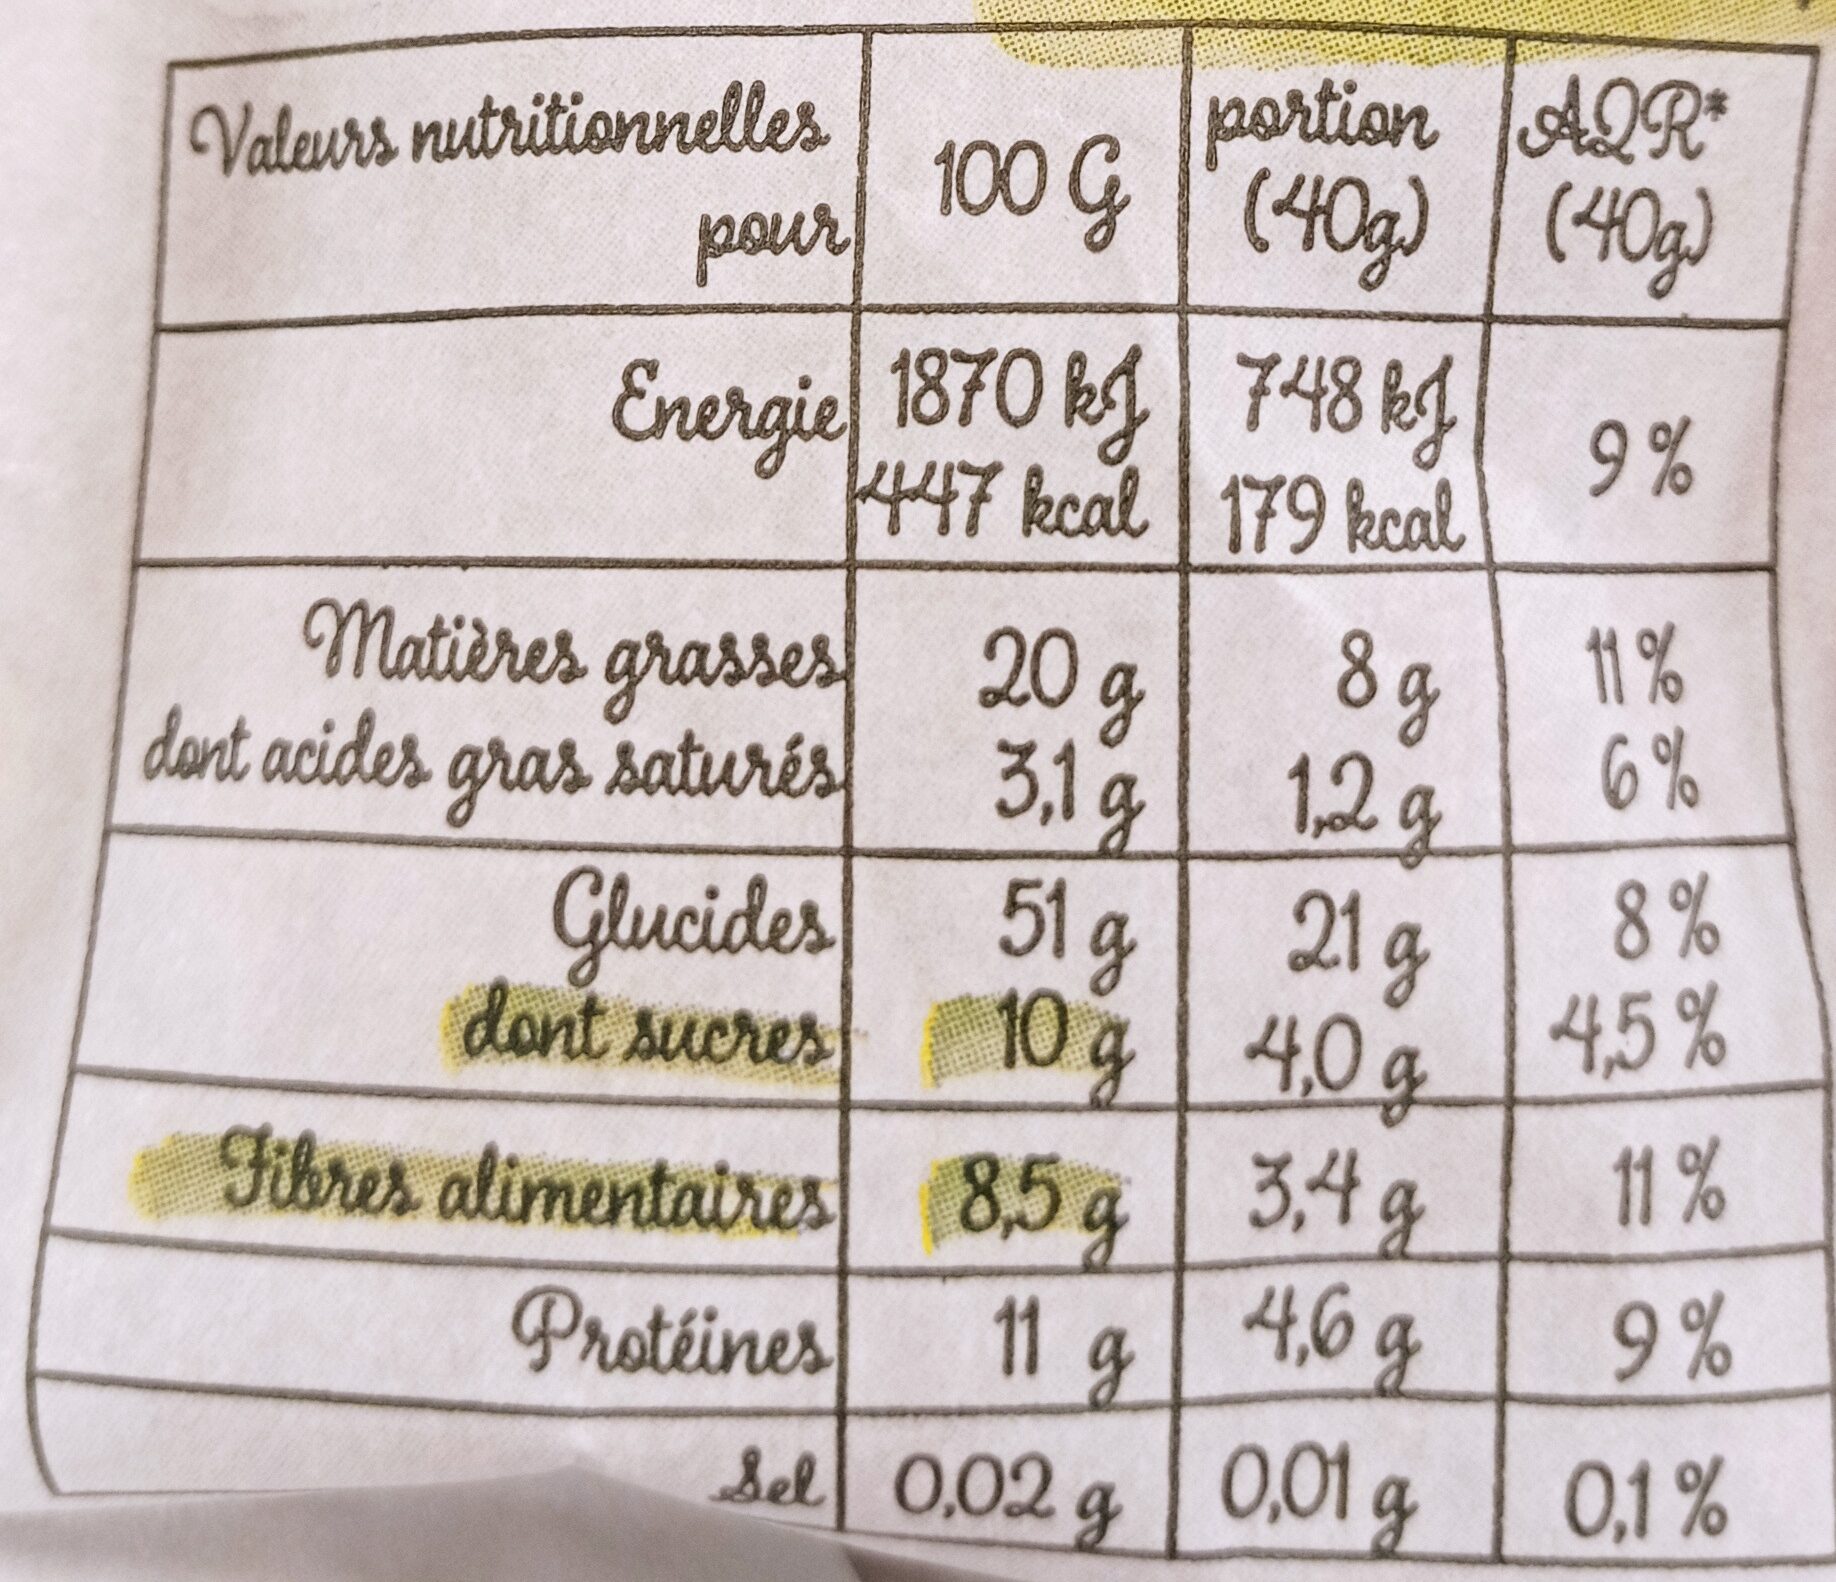 Valeurs nutritionnelles pour 100 G portion (40g) AQR* (40g)
Energie 1870 kJ 748 kJ 9 %
447 kcal 179 kcal
Matières grasses 20 g 8 g 11 %
dont acides gras saturés 3,1 g 1,2 g 6 %
Glucides 51 g 21 g 8 %
dont sucres 10 g 4,0 g 4,5 %
Fibres alimentaires 8,5 g 3,4 g 11 %
Protéines 11 g 4,6 g 9 %
Sel 0,02 g 0,01 g 0,1 %